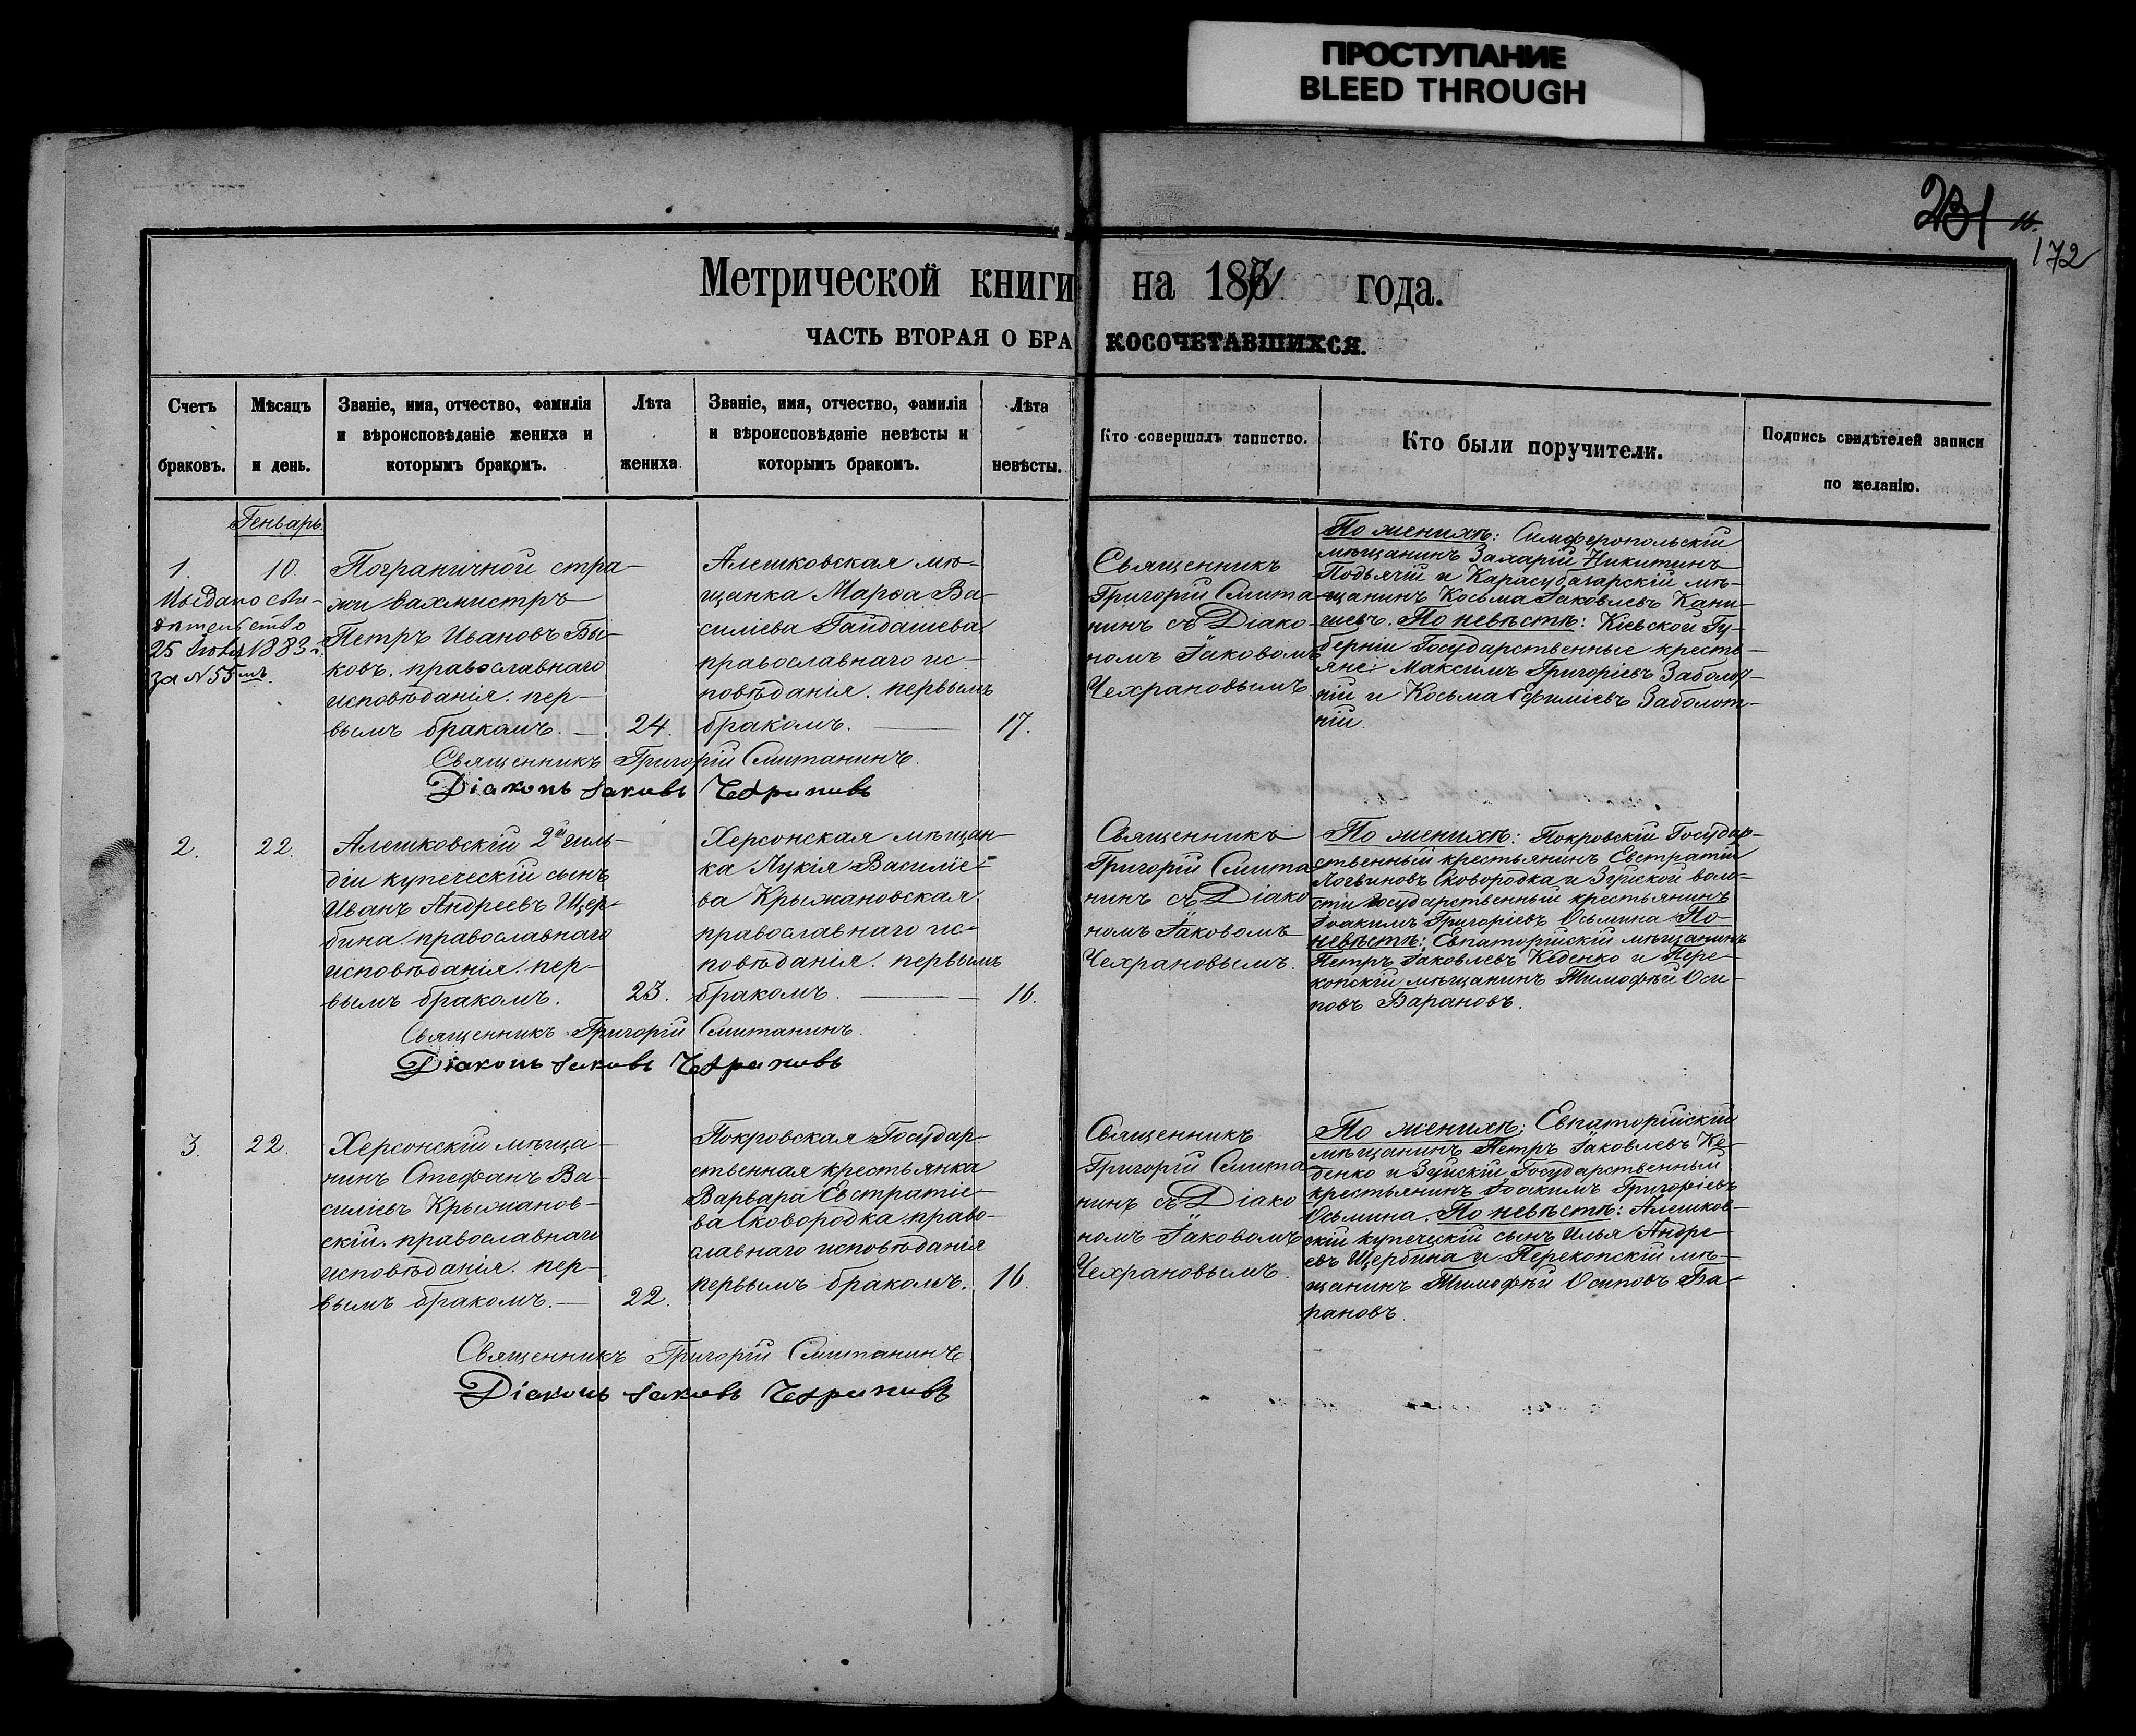 ПРОСТУПАНИЕ
BLEED THROUGH
172
Метрической книги на 187 года.
ЧАСТЬ ВТОРАЯ О БРАКОСОЧЕТАВШИХСЯ.
Счетъ
браковъ.
Мѣсяцъ
и день.
Званіе, имя, отчество, фамилія
и вѣроисповѣданіе жениха и
которымъ бракомъ.
Лѣта
жениха.
Званіе, имя, отчество, фамилія
и вѣроисповѣданіе невѣсты и
которымъ бракомъ.
Лѣта
невѣсты.
Кто совершалъ таинство.
Кто были поручители.
Подпись свидѣтелей записи
по желанію.
Генварь.
1.
Выдано сви-
дѣтельство
25 1883 г.
за № 55мъ.
10.
Пограничной стра-
жи вахмистръ
Петръ Ивановъ Бы-
ковъ. православнаго
исповѣданія. пер-
вымъ бракомъ. —
24.
Алешковская мѣ-
щанка Марѳа Ва-
силіева Гайдашева
православнаго ис-
повѣданія. первымъ
бракомъ. —
17.
Священникъ
Григорій Смита-
нинъ съ Діако-
номъ Іаковомъ
Чехрановымъ
По женихѣ: Симферопольскій
мѣщанинъ Захарій Никитинъ
Подьячій и Карасубазарскій мѣ-
щанинъ Косьма Іаковлевъ Кани-
шевъ. По невѣстѣ: Кіевской Гу-
берніи Государственные кресть-
яне: Максимъ Григоріевъ Заболот-
ній и Косьма Ефиміевъ Заболот-
ній.
Священникъ Григорій Смитанинъ.
Діаконъ Іаковъ Чехрановъ
2.
22.
Алешковскій 2й гиль-
діи купеческій сынъ
Иванъ Андреевъ Щер-
бина. православнаго
исповѣданія. пер-
вымъ бракомъ.
23.
Херсонская мѣщан-
ка Лукія Василіе-
ва Крыжановская
православнаго ис-
повѣданія. первымъ
бракомъ. —
16.
Священникъ
Григорій Смита
нинъ съ Діако
номъ Іаковомъ
Чехрановымъ.
По женихѣ: Покровскій Государ-
ственный крестьянинъ Евстратій
Логвиновъ Сковородка и Зуйской воло-
сти государственный крестьянинъ
Іоакимъ Григоріевъ Осьмина. По
невѣстѣ: Евпаторійскій мѣщанинъ
Петръ Іаковлевъ Кеденко и Пере-
копскій мѣщанинъ Тимофѣй Оси-
повъ Барановъ.
Священникъ Григорій Смитанинъ.
Діаконъ Іаковъ Чехрановъ
3.
22.
Херсонскій мѣща-
нинъ Стефанъ Ва-
силіевъ Крыжанов-
скій. православнаго
исповѣданія. пер-
вымъ бракомъ. —
22.
Покровская Государ-
ственная крестьянка
Варвара Евстратіе-
ва Сковородка право-
славнаго исповѣданія
первымъ бракомъ.
16.
Священникъ
Григорій Смита
нинъ съ Діако
номъ Іаковомъ
Чехрановымъ.
По женихѣ: Евпаторійскій
мѣщанинъ Петръ Іаковлевъ Ке-
денко и Зуйскій Государственный
крестьянинъ Іоакимъ Григоріевъ
Осьмина. По невѣстѣ: Алешков-
скій купеческій сынъ Илья Андре-
евъ Щербина и Перекопскій мѣ-
щанинъ Тимофѣй Осиповъ Ба-
рановъ.
Священникъ Григорій Смитанинъ.
Діаконъ Іаковъ Чехрановъ